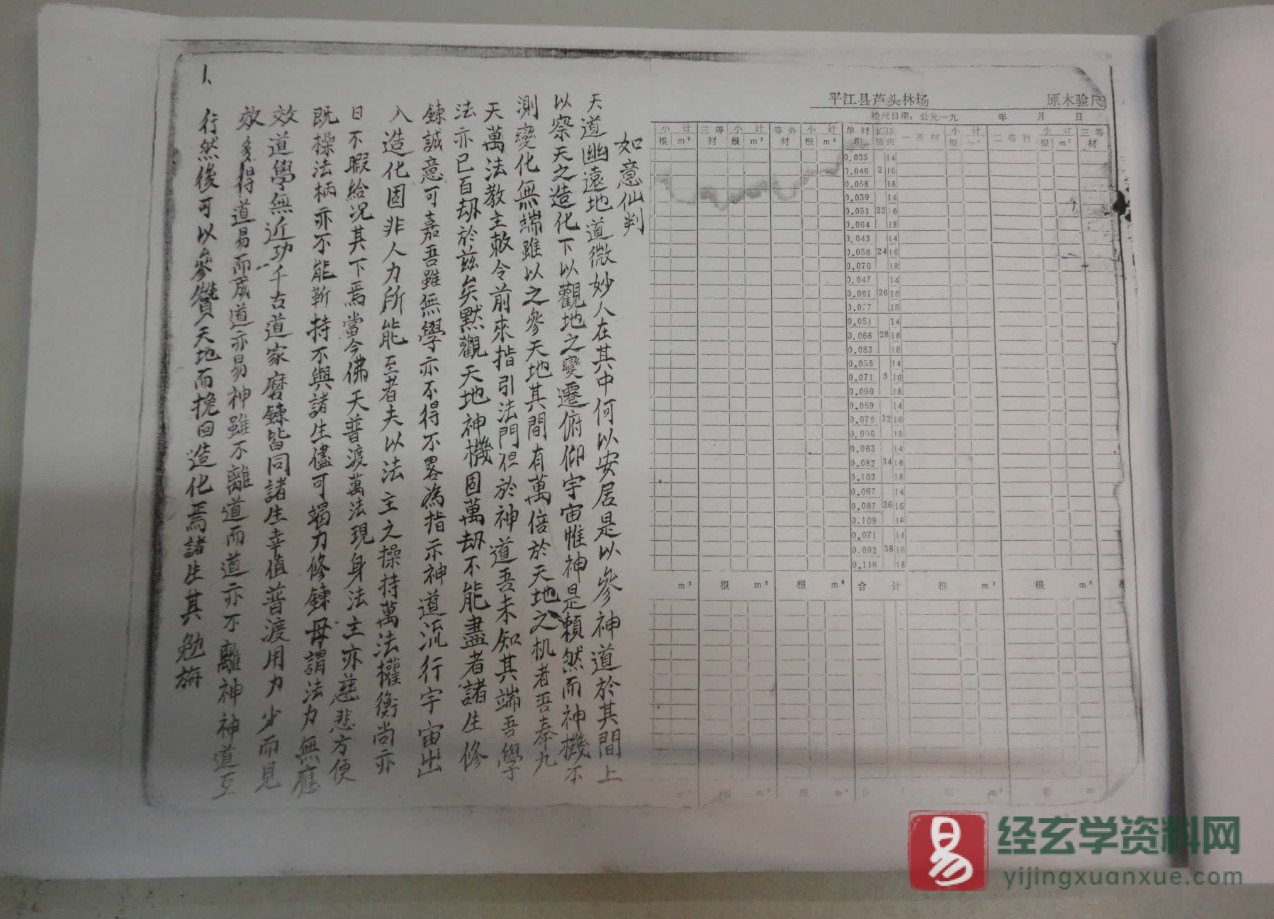 如意仙判
天道幽遠地道微妙人在其中何以安居是以參神道於其間上
以察天之造化下以觀地之變遷俯仰宇宙惟神是賴然而神機不
測變化無端雖以之參天地其間有萬倍於天地之机者吾奉九
天萬法教主敕令前來指引法門但於神道吾未知其端吾學
法亦已百刼於茲矣默觀天地神機固萬刼不能盡者諸生修
鍊誠意可嘉吾雖無學亦不得不畧為指示神道流行宇宙出
入造化固非人力所能至者夫以法主之操持萬法權衡尚亦
日不暇給况其下焉當今佛天普渡萬法現身法主亦慈悲方便
既操法柄亦不能靳持不與諸生儘可竭力修鍊毋謂法力無應
效道學無近功千古道家磨鍊皆同諸生幸值普渡用力少而見
效多得道易而成道亦易神雖不離道而道亦不離神神道互
行然後可以參贊天地而挽回造化焉諸生其勉旃
1、
平江县芦头林场
原木验尺
检尺日期：公元一九 年 月 日
小计 三等材 小计 等外材 小计 单材积 一等材 小计 二等材 小计 三等材
根 m³ 根 m³ 根 m³ 根 m³ 根 m³
0.035 14
0.046 2 16
0.058 18
0.039 14
0.051 22 16
0.064 18
0.043 14
0.056 24 16
0.070 18
0.047 14
0.061 26 16
0.077 18
0.051 14
0.066 28 16
0.083 18
0.055 14
0.071 3 16
0.090 18
0.059 14
0.076 32 16
0.096 18
0.063 14
0.082 34 16
0.103 18
0.067 14
0.087 36 16
0.109 18
0.071 14
0.092 38 16
0.116 18
m³ 根 m³ 根 m³ 合计 根 m³ 根 m³ 根
m³ 根 m³ 根 m³ 合 根 m³ 根 m
易
经玄学资料网
yijingxuanxue.com